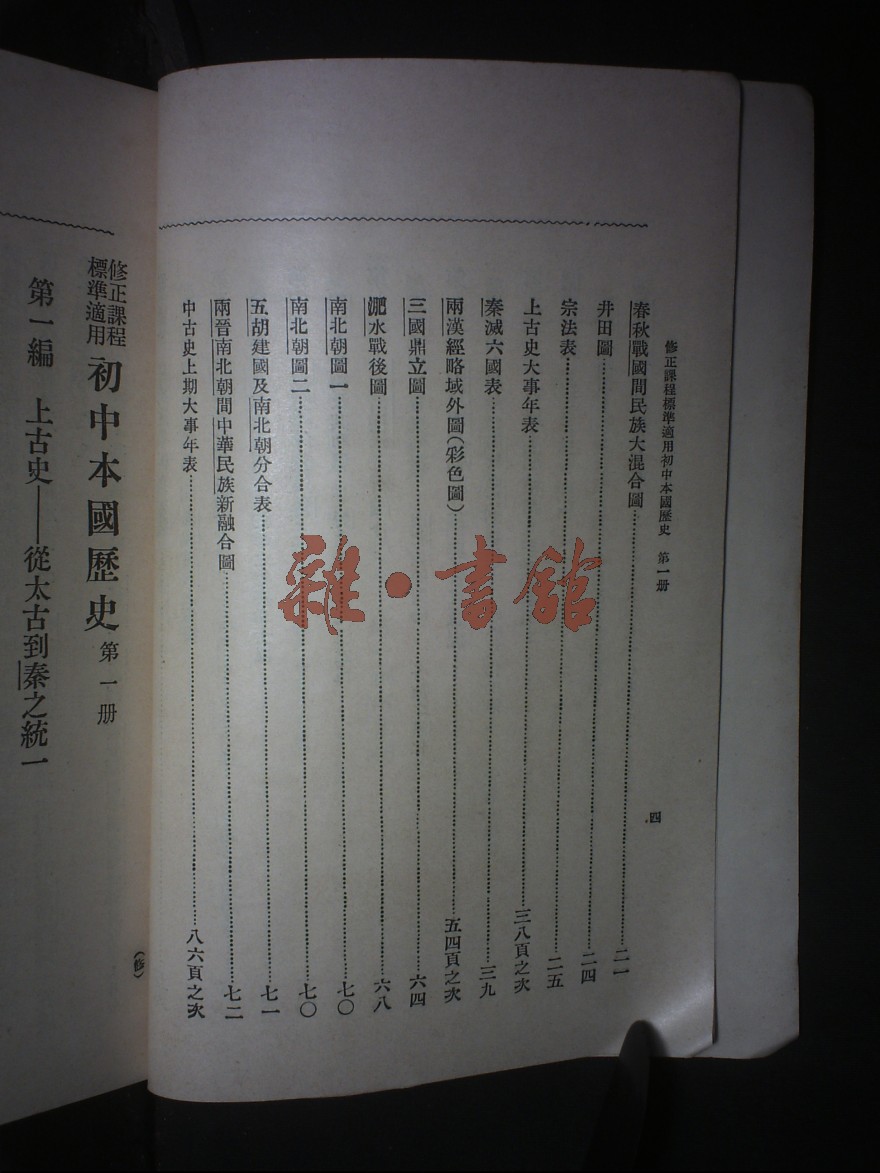 修正課程標準適用初中本國歷史 第一册
四
春秋戰國間民族大混合圖……二一
井田圖……二四
宗法表……二五
上古史大事年表……三八頁之次
秦滅六國表……三九
兩漢經略域外圖(彩色圖)……五四頁之次
三國鼎立圖……六四
淝水戰後圖……六八
南北朝圖一……七〇
南北朝圖二……七〇
五胡建國及南北朝分合表……七一
兩晉南北朝間中華民族新融合圖……七二
中古史上期大事年表……八六頁之次
雜·書館
修正課程
標準適用
初中本國歷史 第一册
第一編 上古史——從太古到秦之統一
(修)